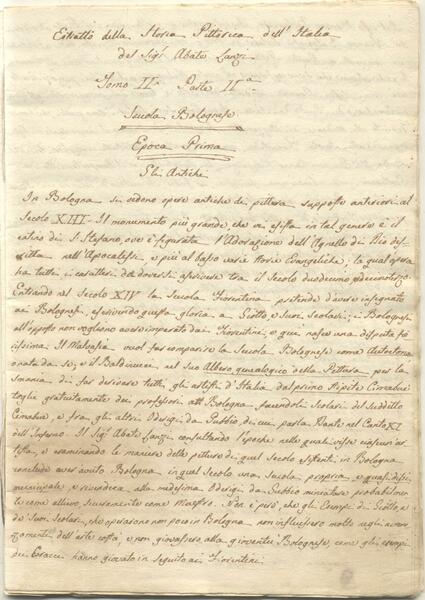 Estratto della Storia Pittorica dell'Italia
del Sigr Abate Lanzi
Tomo II° Parte IIa
Scuola Bolognese
Epoca Prima
Gli Antichi
In Bologna si vedono opere antiche di pittura supposte anteriori al
Secolo XIII. Il monumento più grande, che vi esista in tal genere è il
catino di S. Stefano, ove è figurata l'Adorazione dell'Agnello di Dio des-
critta nell'Apocalisse, e più al basso varie storie Evangeliche; la qual opera
ha tutti i caratteri da doversi ascrivere tra il Secolo duodecimo, e decimoterzo.
Entrando nel Secolo XIV la Scuola Fiorentina pretende d'avere insegnato
ai Bolognesi, ascrivendo questa gloria a Giotto e suoi Scolari; i Bolognesi
all'opposto non vogliono avere imperato dai Fiorentini, e qui nasce una disputa fo
sissima. Il Malvasia vuol far comparire la Scuola Bolognese come
da se, e il Baldinucci nel suo Albero genealogico della Pittura per la
smania di far derivare tutti gli artisti d'Italia dal primo stipite Cimabue
toglie gratuitamente dei professori all Bologna facendoli Scolari del suddetto
Cimabue, e fra gli altri Oderigi da Gubbio, di cui parla Dante nel Canto XI
dell'Inferno. Il Sigr Abate Lanzi consultando l'epoche nelle quali visse ciascun ar-
tista, e esaminando le maniere delle pitture di quel Secolo esistenti in Bologna
conclude aver avuto Bologna in quel secolo una scuola propria, e quasi dissi
municipale e rivendica alla medesima Oderigi da Gubbio miniatore probabilmen
te come allievo, sicuramente come Maestro. Non è però, che gli Esempi di Giotto, e
de' suoi Scolari, che operarono non poco in Bologna non influissero molto negli avan
zamenti dell'arte costà, e non giovassero alla gioventù Bolognese, come gli esempi
dei Caracci hanno giovato in seguito ai Fiorentini.